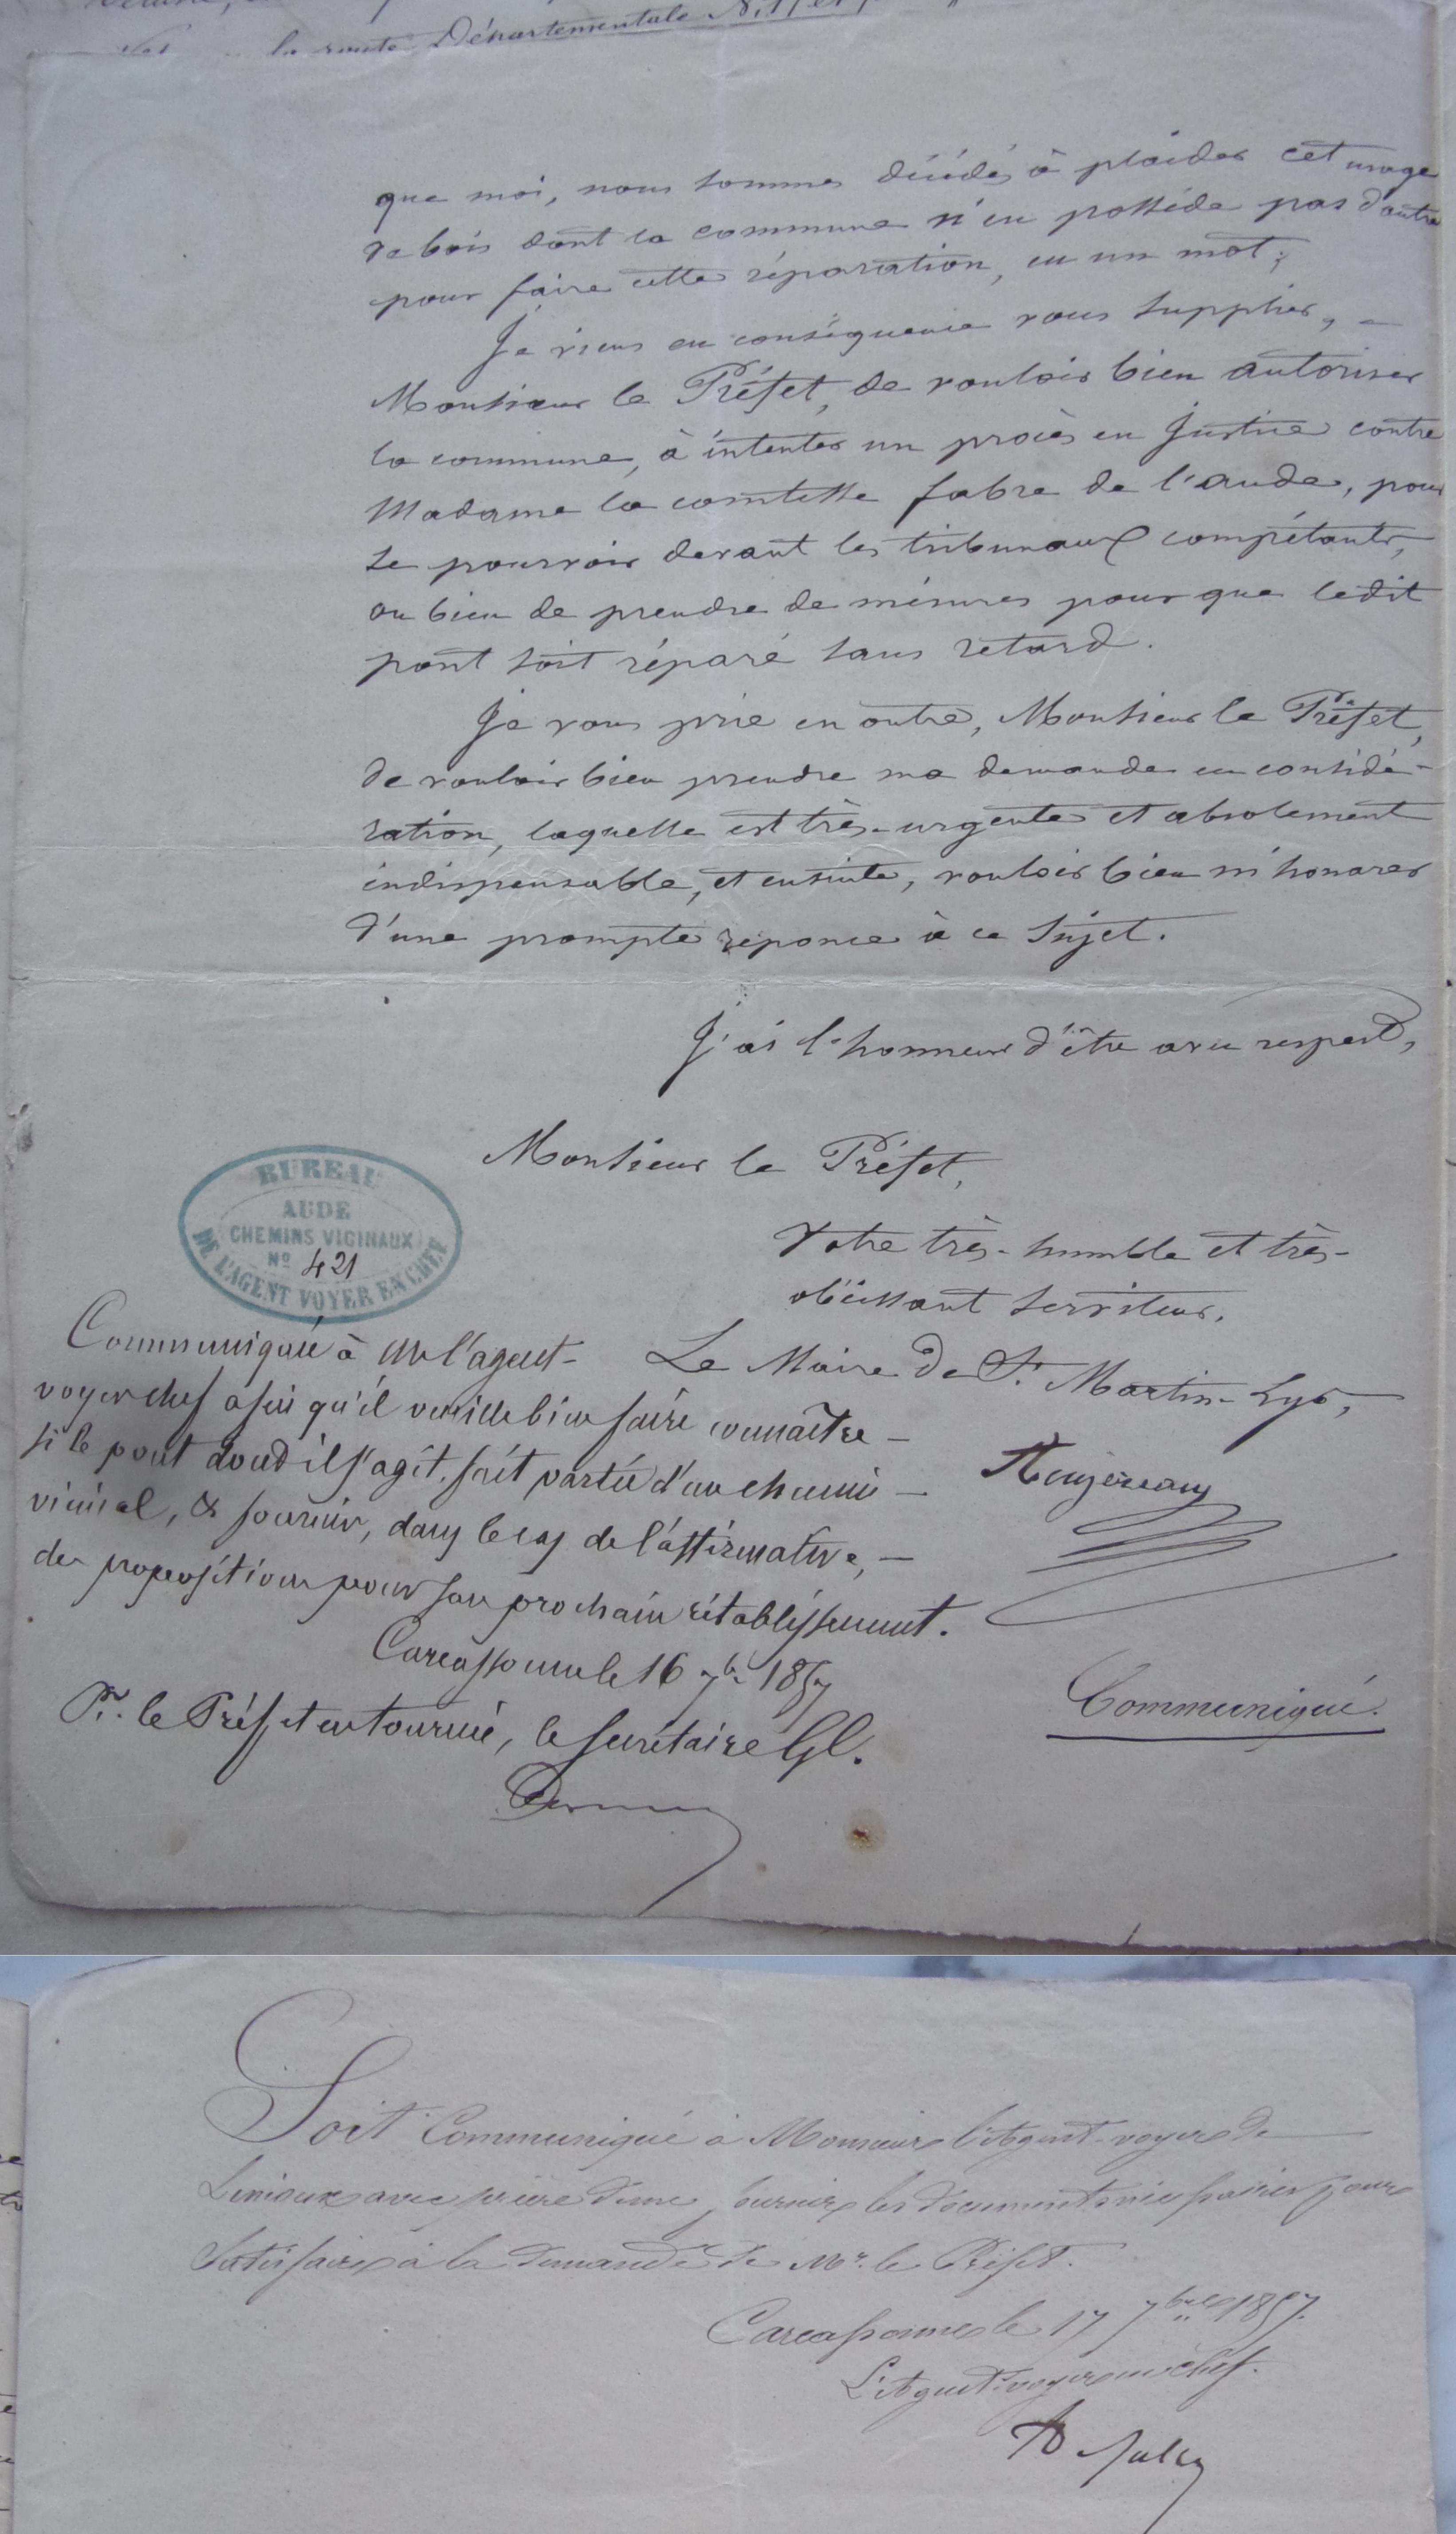 la route Départementale N.
que moi, nous sommes décidés à plaider cet usage
de bois dont la commune n'en possède pas d'autre
pour faire cette réparation, en un mot;
Je viens en conséquence vous supplier, -
Monsieur le Préfet, de vouloir bien autoriser
la commune, à intenter un procès en justice contre
Madame la comtesse fabre de l'aude, pour
se pourvoir devant les tribunaux compétants,
ou bien de prendre de mésures pour que ledit
pont soit réparé sans retard.
Je vous prie en outre, Monsieur le Préfet,
de vouloir bien prendre ma demande en considé-
ration, laquelle est très-urgente et absolement
indispensable, et ensuite, vouloir bien m'honorer
d'une prompte réponce à ce sujet.
J'ai l'honneur d'être avec respect,
Monsieur le Préfet,
Votre très-humble et très-
obéissant serviteur.
Le Maire de St. Martin-Lys,
BUREAU
AUDE
CHEMINS VICINAUX
N° 421
DE L'AGENT VOYER EN CHEF
Communiqué à Mr l'agent-
voyer chef afin qu'il veuille bien faire connaître -
si le pont dont il s'agit, fait partie d'un chemin -
vicinal, & fournir, dans le cas de l'affirmative, -
des propositions pour son prochain rétablissement.
Carcassonne le 16 7bre 1857
Pr. le Préfet en tournée, le secrétaire Gl.
Communiqué.
Soit Communiqué à Monsieur l'Agent-voyer de
Limoux avec prière d'en fournir les documents nécessaires pour
Satisfaire à la demande de Mr. le Préfet.
Carcassonne le 17 7bre 1857.
L'Agent-voyer en chef.